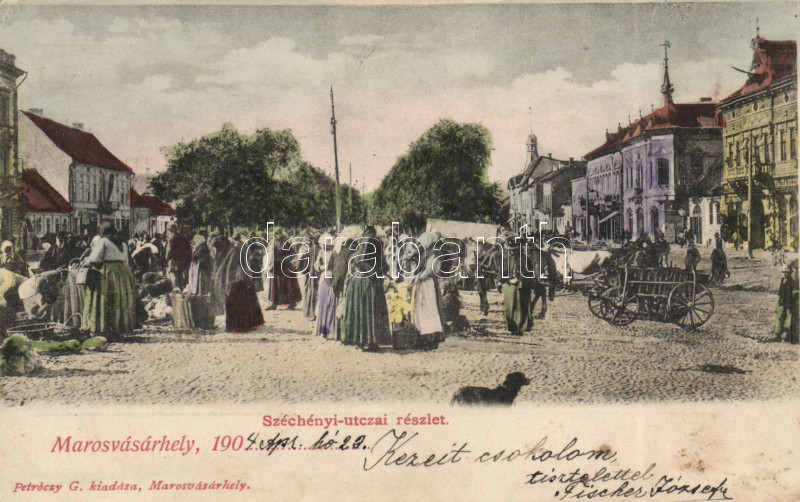 darabanth
Széchényi-utczai részlet.
Marosvásárhely, 1904 Apr. hó 23.
Kezeit csokolom
tisztelettel
Fischer József
Petróczy G. kiadása, Marosvásárhely.